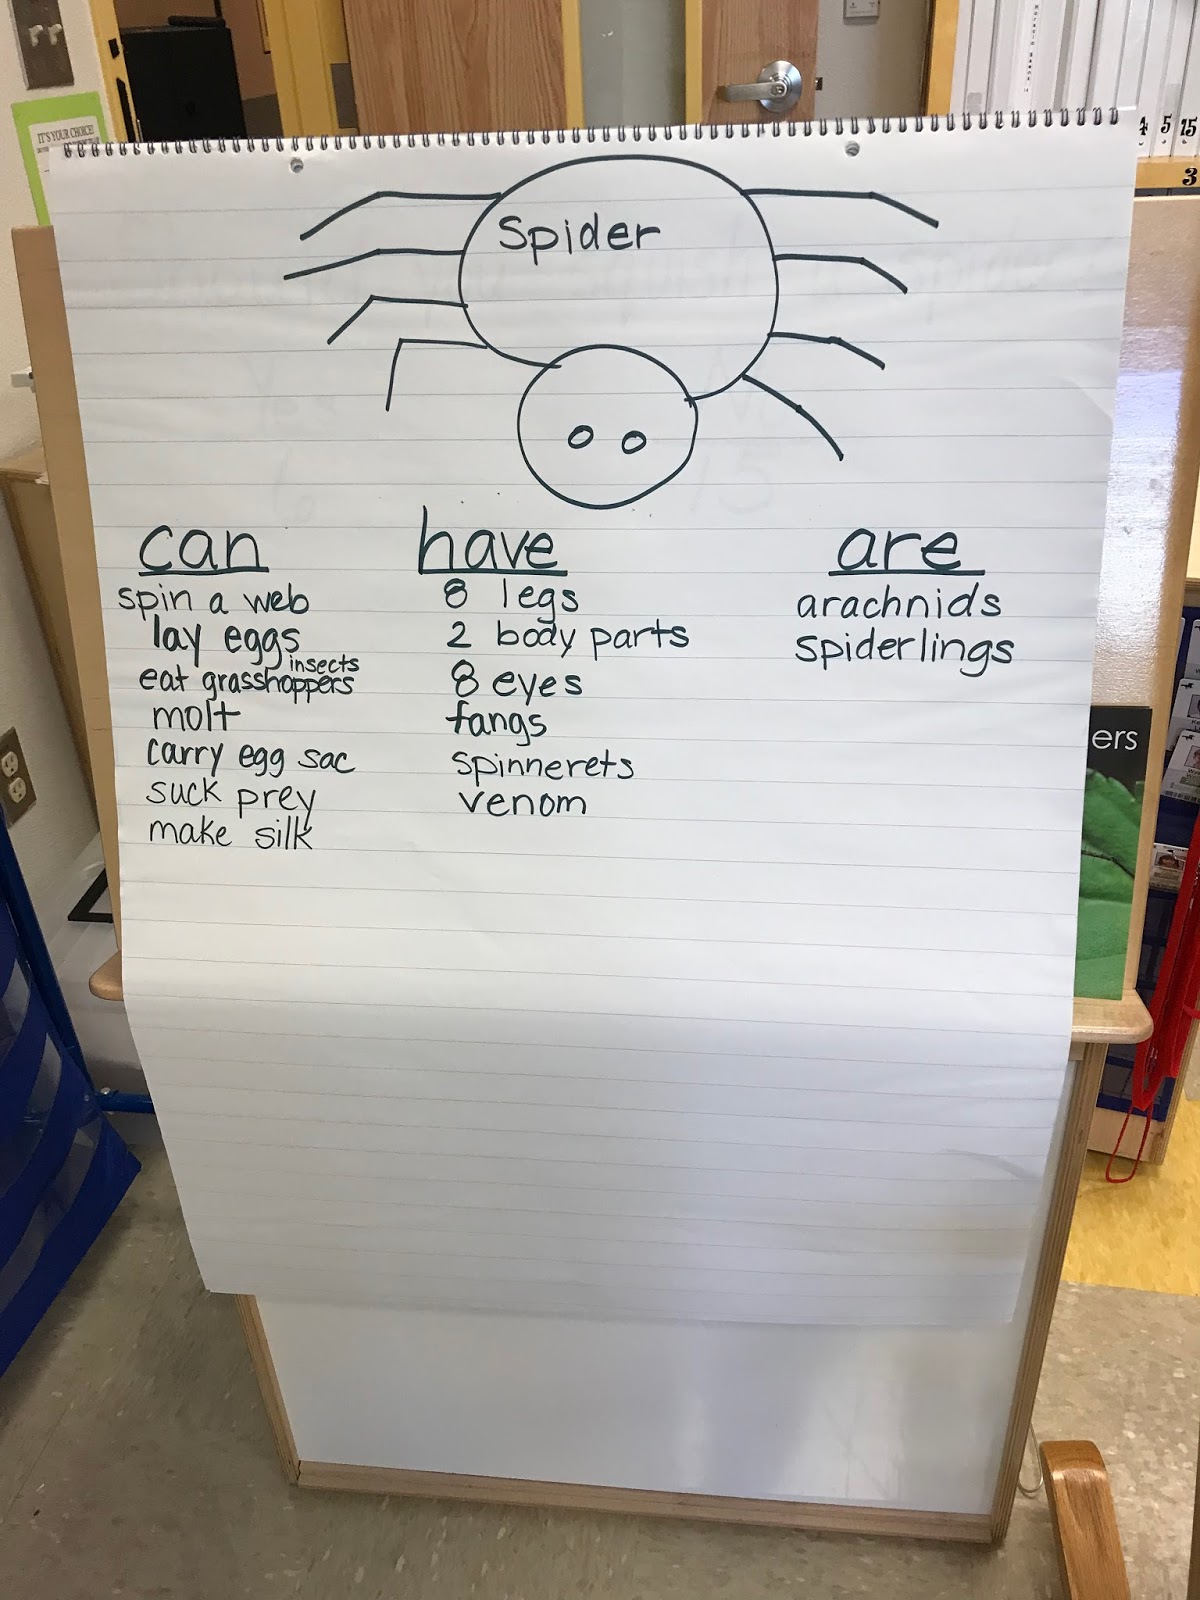 IT'S YOUR CHOICE!
4 5 15
3
Spider
can have are
spin a web 8 legs arachnids
lay eggs 2 body parts spiderlings
insects
eat grasshoppers 8 eyes
molt fangs
carry egg sac spinnerets
suck prey venom
make silk
ers